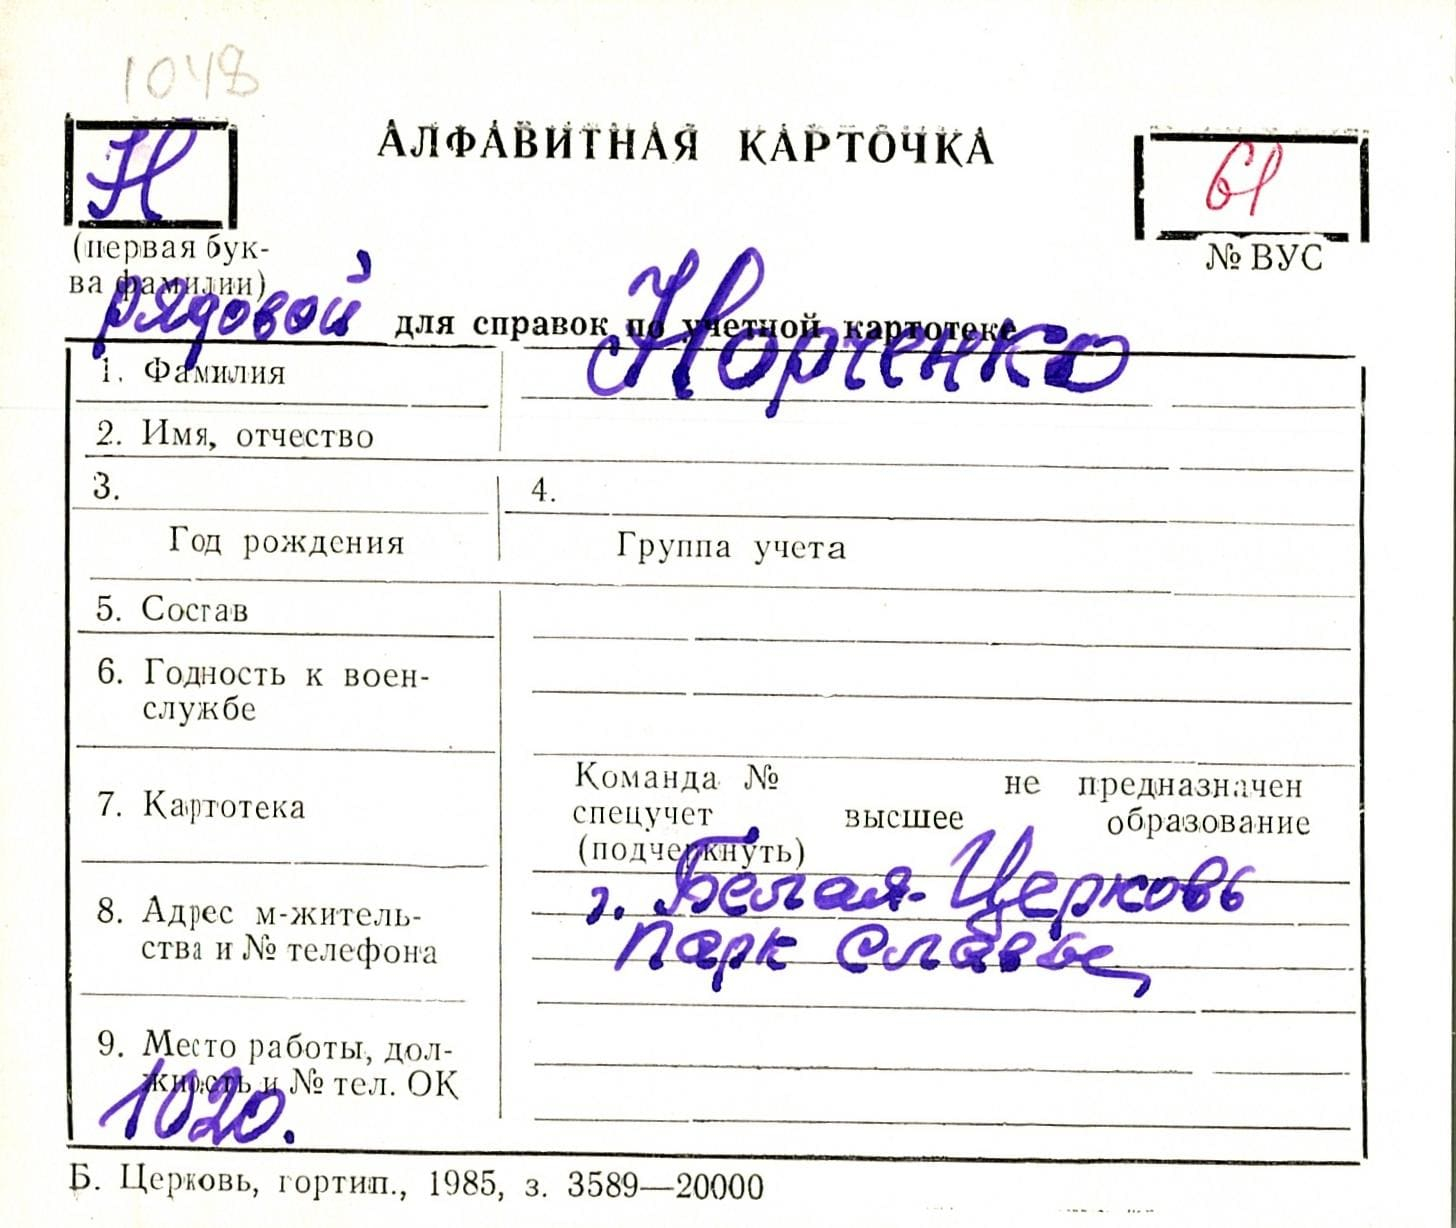 1048
Н
АЛФАВИТНАЯ КАРТОЧКА
61
(первая бук-
ва фамилии)
№ ВУС
рядовой
для справок по учетной картотеке
1. Фамилия
Норченко
2. Имя, отчество
3.
4.
Год рождения
Группа учета
5. Состав
6. Годность к воен-
службе
7. Картотека
Команда № не предназначен
спецучет высшее образование
(подчеркнуть)
8. Адрес м-житель-
ства и № телефона
г. Белая-Церковь
Парк Славы,
9. Место работы, дол-
жность и № тел. ОК
1020.
Б. Церковь, гортип., 1985, з. 3589—20000